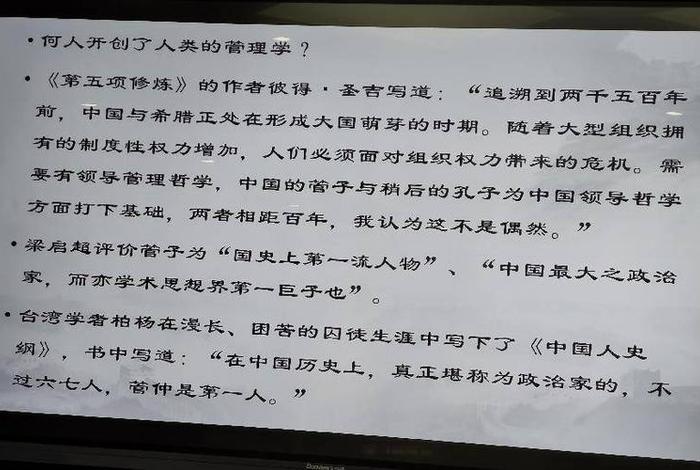 • 何人开创了人类的管理学？
• 《第五项修炼》的作者彼得·圣吉写道：“追溯到两千五百年
前，中国与希腊正处在形成大国萌芽的时期。随着大型组织拥
有的制度性权力增加，人们必须面对组织权力带来的危机。需
要有领导管理哲学，中国的管子与稍后的孔子为中国领导哲学
方面打下基础，两者相距百年，我认为这不是偶然。”
• 梁启超评价管子为“国史上第一流人物”、“中国最大之政治
家，而亦学术思想界第一巨子也”。
• 台湾学者柏杨在漫长、困苦的囚徒生涯中写下了《中国人史
纲》，书中写道：“在中国历史上，真正堪称为政治家的，不
过六七人，管仲是第一人。”